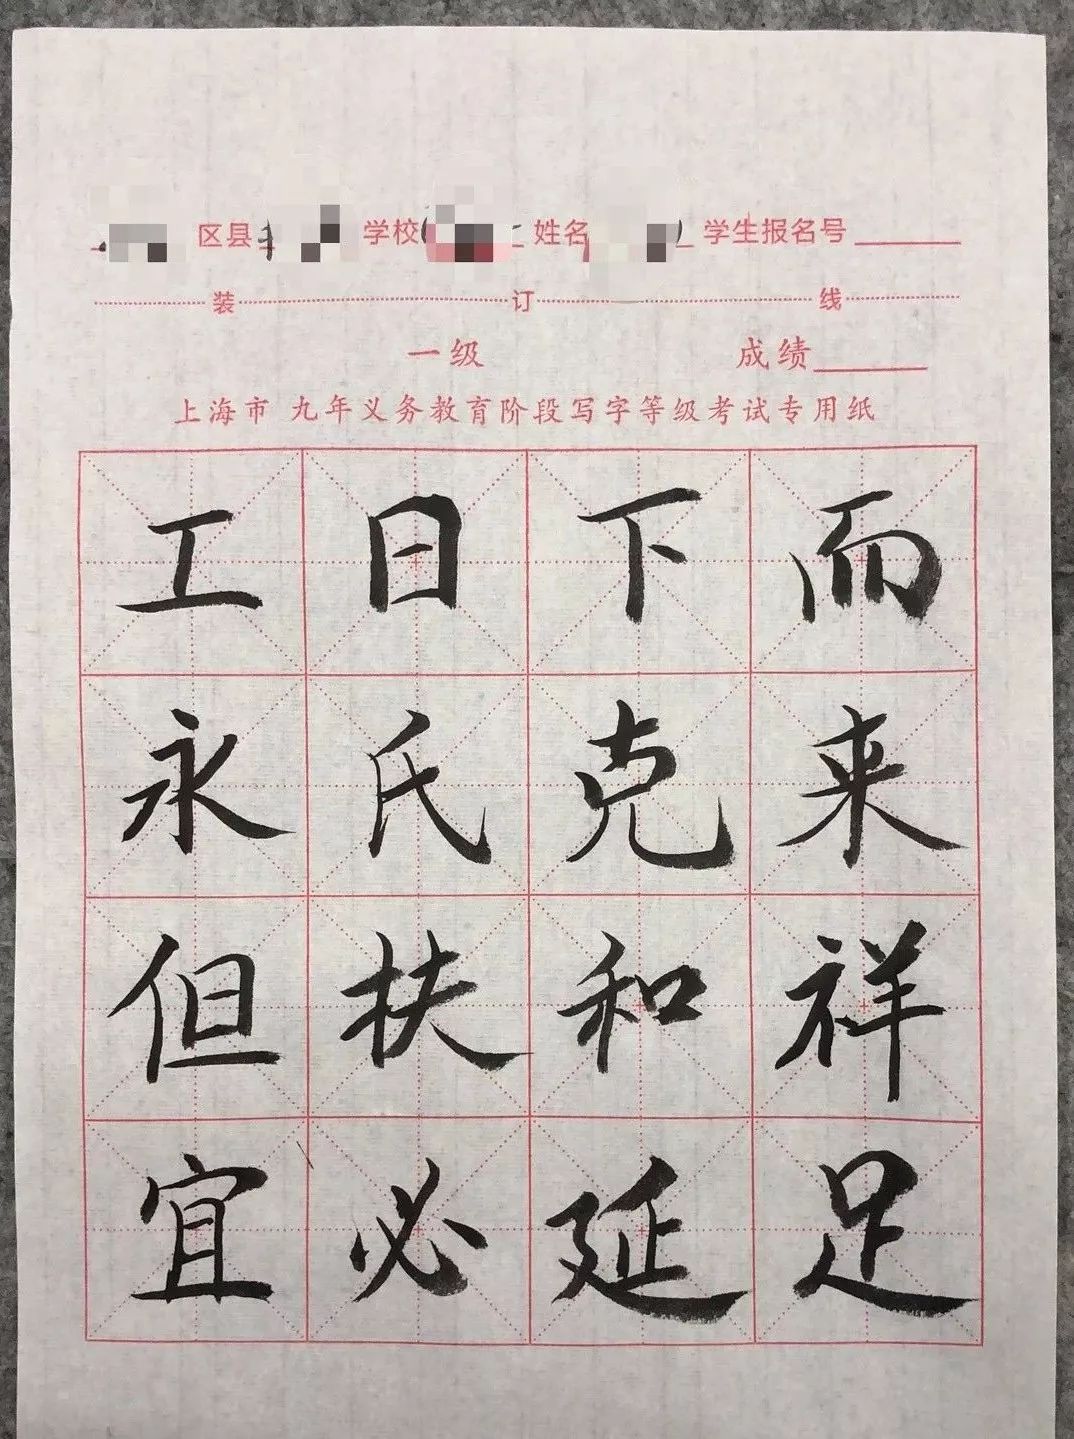 区县 学校 姓名 学生报名号
装 订 线
一级 成绩
上海市 九年义务教育阶段写字等级考试专用纸
工日下而
永氏克来
但扶和祥
宜必延足